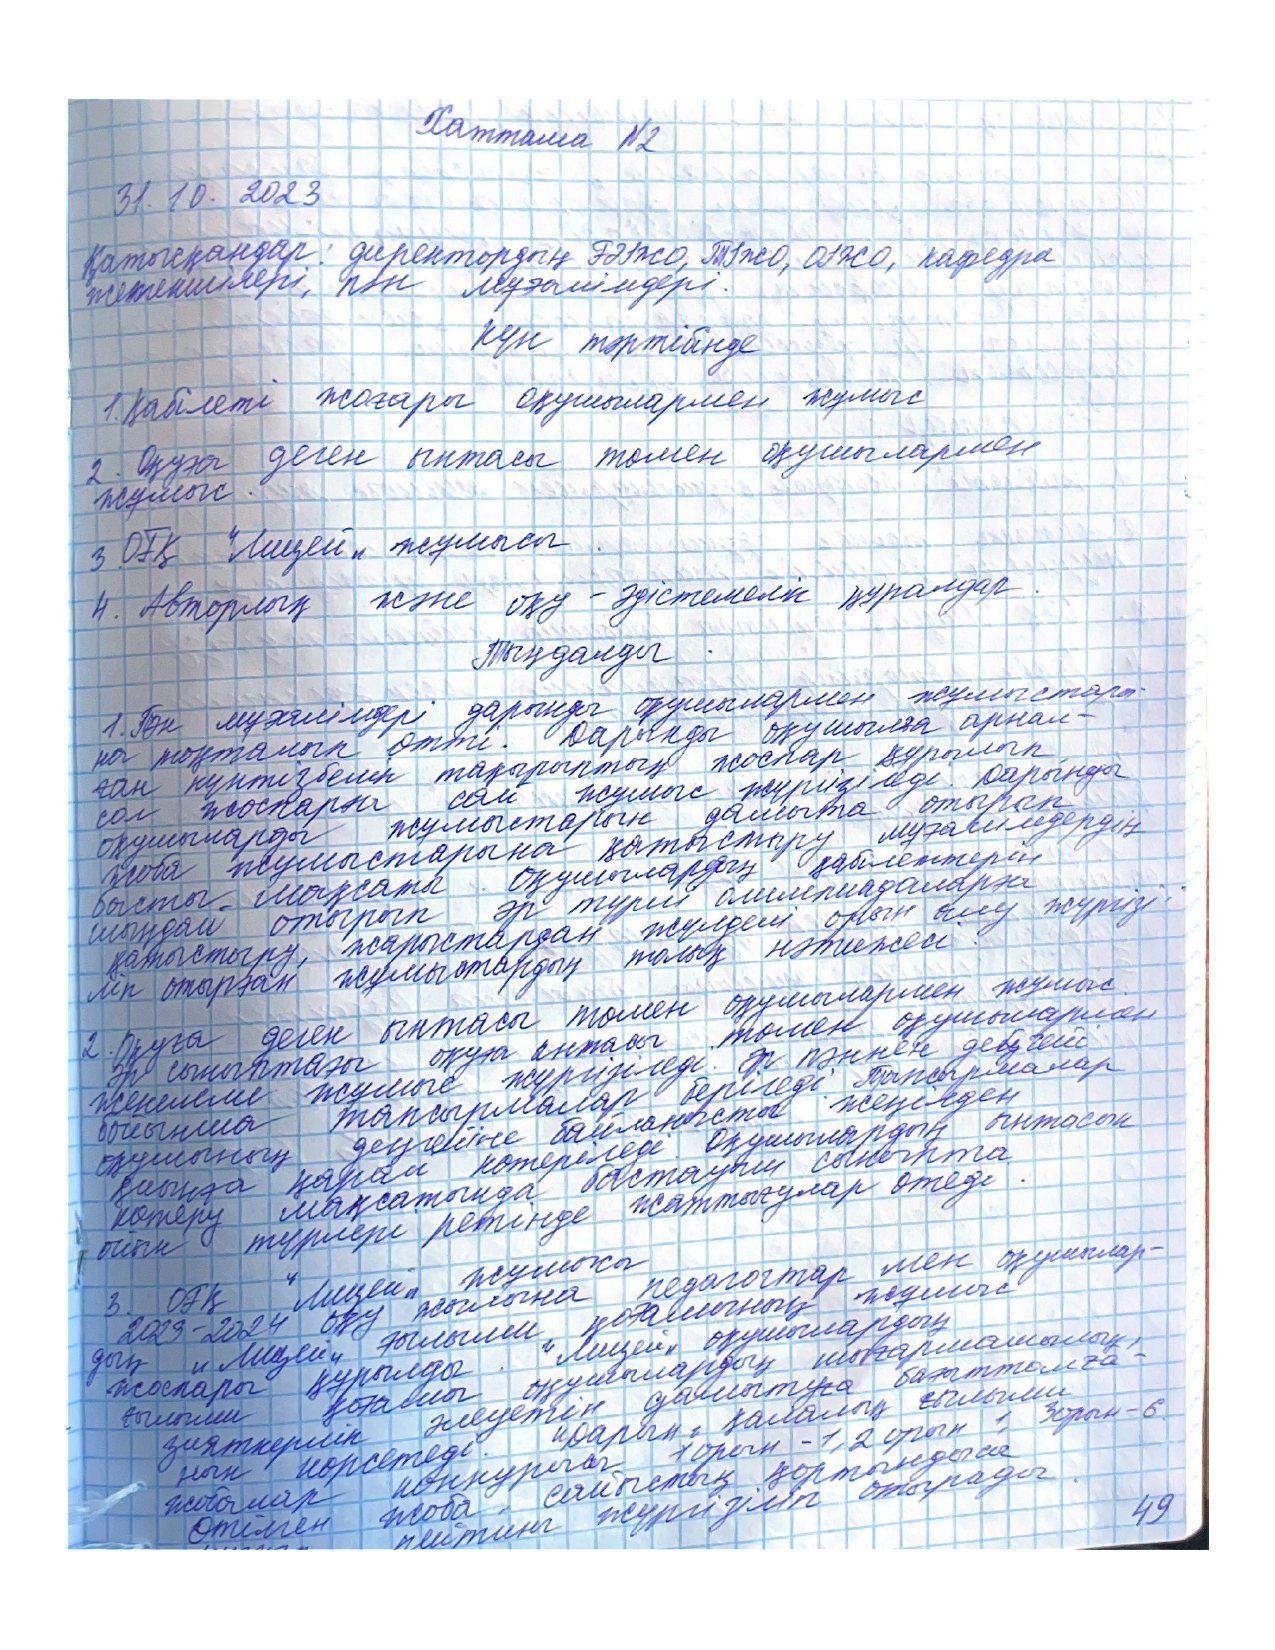 Хаттама №2
31.10.2023
Қатысқандар: директордың ҒӘІЖО, ТІЖО, ОІЖО, кафедра
жетекшілері, пән мұғалімдері.
Күн тәртібінде
1. Қабілеті жоғары оқушылармен жұмыс
2. Оқуға деген ынтасы төмен оқушылармен
жұмыс.
3. ОҒҚ "Лицей" жұмысы.
4. Авторлық және оқу-әдістемелік құралдар.
Тыңдалды.
1. Пән мұғалімдері дарынды оқушылармен жұмыстары-
на тоқталып өтті. Дарынды оқушыға арнал-
ған күнтізбелік тақырыптық жоспар құрылып
сол жоспарға сай жұмыс жүргізіледі. Дарынды
оқушыларды жұмыстарын дамыта отырып
жоба жұмыстарына қатыстыру мұғалімдердің
басты мақсаты. Оқушылардың қабілеттерін
шыңдай отырып әр түрлі олимпиадаларға
қатыстыру, жарыстардан жүлделі орын алу жүргізі-
ліп отырған жұмыстардың толық нәтижесі.
2. Оқуға деген ынтасы төмен оқушылармен жұмыс.
Әр сыныптағы оқуға ынтасы төмен оқушылармен
жекелеме жұмыс жүргізіледі. Әр пәннен деңгейі
бойынша тапсырмалар беріледі. Тапсырмалар
оқушының деңгейіне байланысты жеңілден
қиынға қарай көтеріледі. Оқушылардың ынтасын
көтеру мақсатында бастауыш сыныпта
ойын түрлері ретінде жаттығулар өтеді.
3. ОҒҚ "Лицей" жұмысы
2023-2024 оқу жылына педагогтар мен оқушылар-
дың "Лицей" ғылыми қоғамының жұмыс
жоспары құрылды. "Лицей" оқушылардың
ғылыми қоғамы оқушылардың шығармашылық,
зияткерлік әлеуетін дамытуға бағытталға-
нын көрсетеді. "Дарын" қалалық ғылыми
жобалар конкурсы 1 орын - 1, 2 орын 1, 3 орын - 6.
Өтілген жоба сайыстың қортындысы
рейтинг жүргізіліп отырады.
49